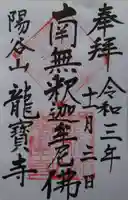 奉拝
令和三年
十一月三日
南無釈迦牟尼佛
陽谷山
龍寶寺